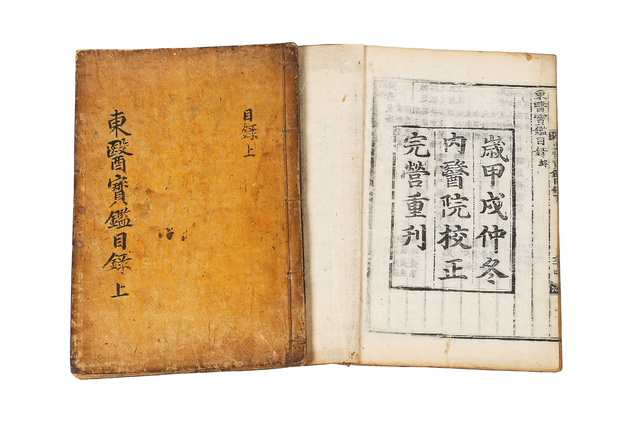 東醫寶鑑目錄 上
目錄 上
歲甲戌仲冬
內醫院校正
完營重刊
東醫寶鑑目錄 終